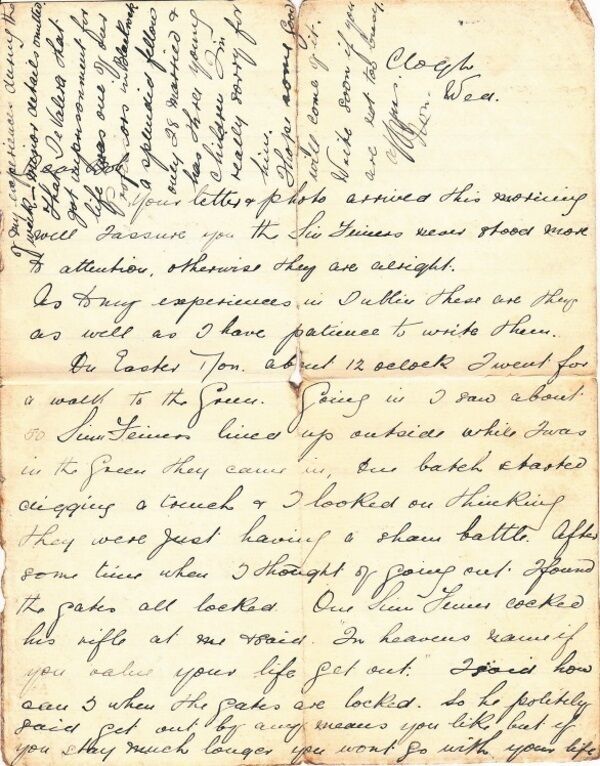 Clogh
Wed.
Your letter & photo arrived this morning
well I assure you the Sin Feiners never stood more
to attention, otherwise they are alright.
As to my experiences in Dublin these are they
as well as I have patience to write them.
On Easter Mon. about 12 oclock I went for
a walk to the Green. Going in I saw about
50 Sinn Feiners lined up outside while I was
in the Green they came in, One batch started
digging a trench & I looked on thinking
they were just having a sham battle. After
some time when I thought of going out I found
the gates all locked. One Sinn Feiner cocked
his rifle at me & said. "In heavens name if
you value your life get out." I said how
can I when the gates are locked. So he politely
said get out by any means you like but if
you stay much longer you wont go with your life
of my experiences during the
week – minor details omitted.
That De Valera that
got imprisonment for
life was one of our
professors in Blackrock
a splendid fellow
only 28 married &
has three young
children I'm
really sorry for
him.
I hope some good
will come of it.
Write soon if you
are not too busy.